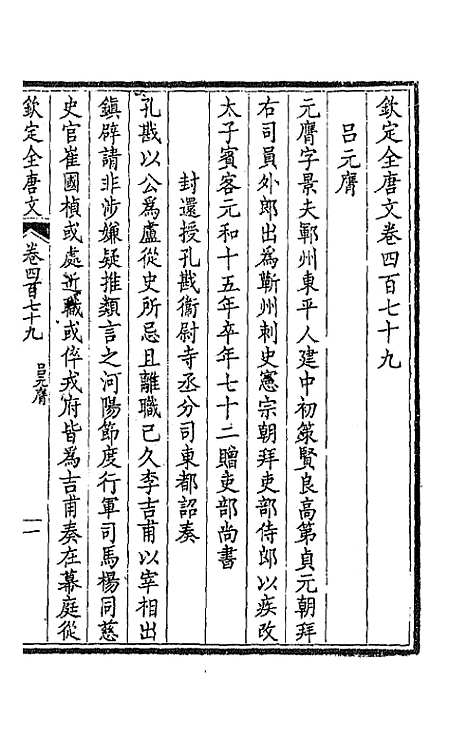 欽定全唐文卷四百七十九
呂元膺
元膺字景夫鄆州東平人建中初策賢良高第貞元朝拜
右司員外郎出為蘄州刺史憲宗朝拜吏部侍郎以疾改
太子賓客元和十五年卒年七十二贈吏部尚書
封還授孔戡衛尉寺丞分司東都詔奏
孔戡以公為盧從史所忌且離職已久李吉甫以宰相出
鎮辟請非涉嫌疑推類言之河陽節度行軍司馬楊同慈
史官崔國楨或處近職或倅戎府皆為吉甫奏在幕庭從
欽定全唐文
卷四百七十九
呂元膺
一